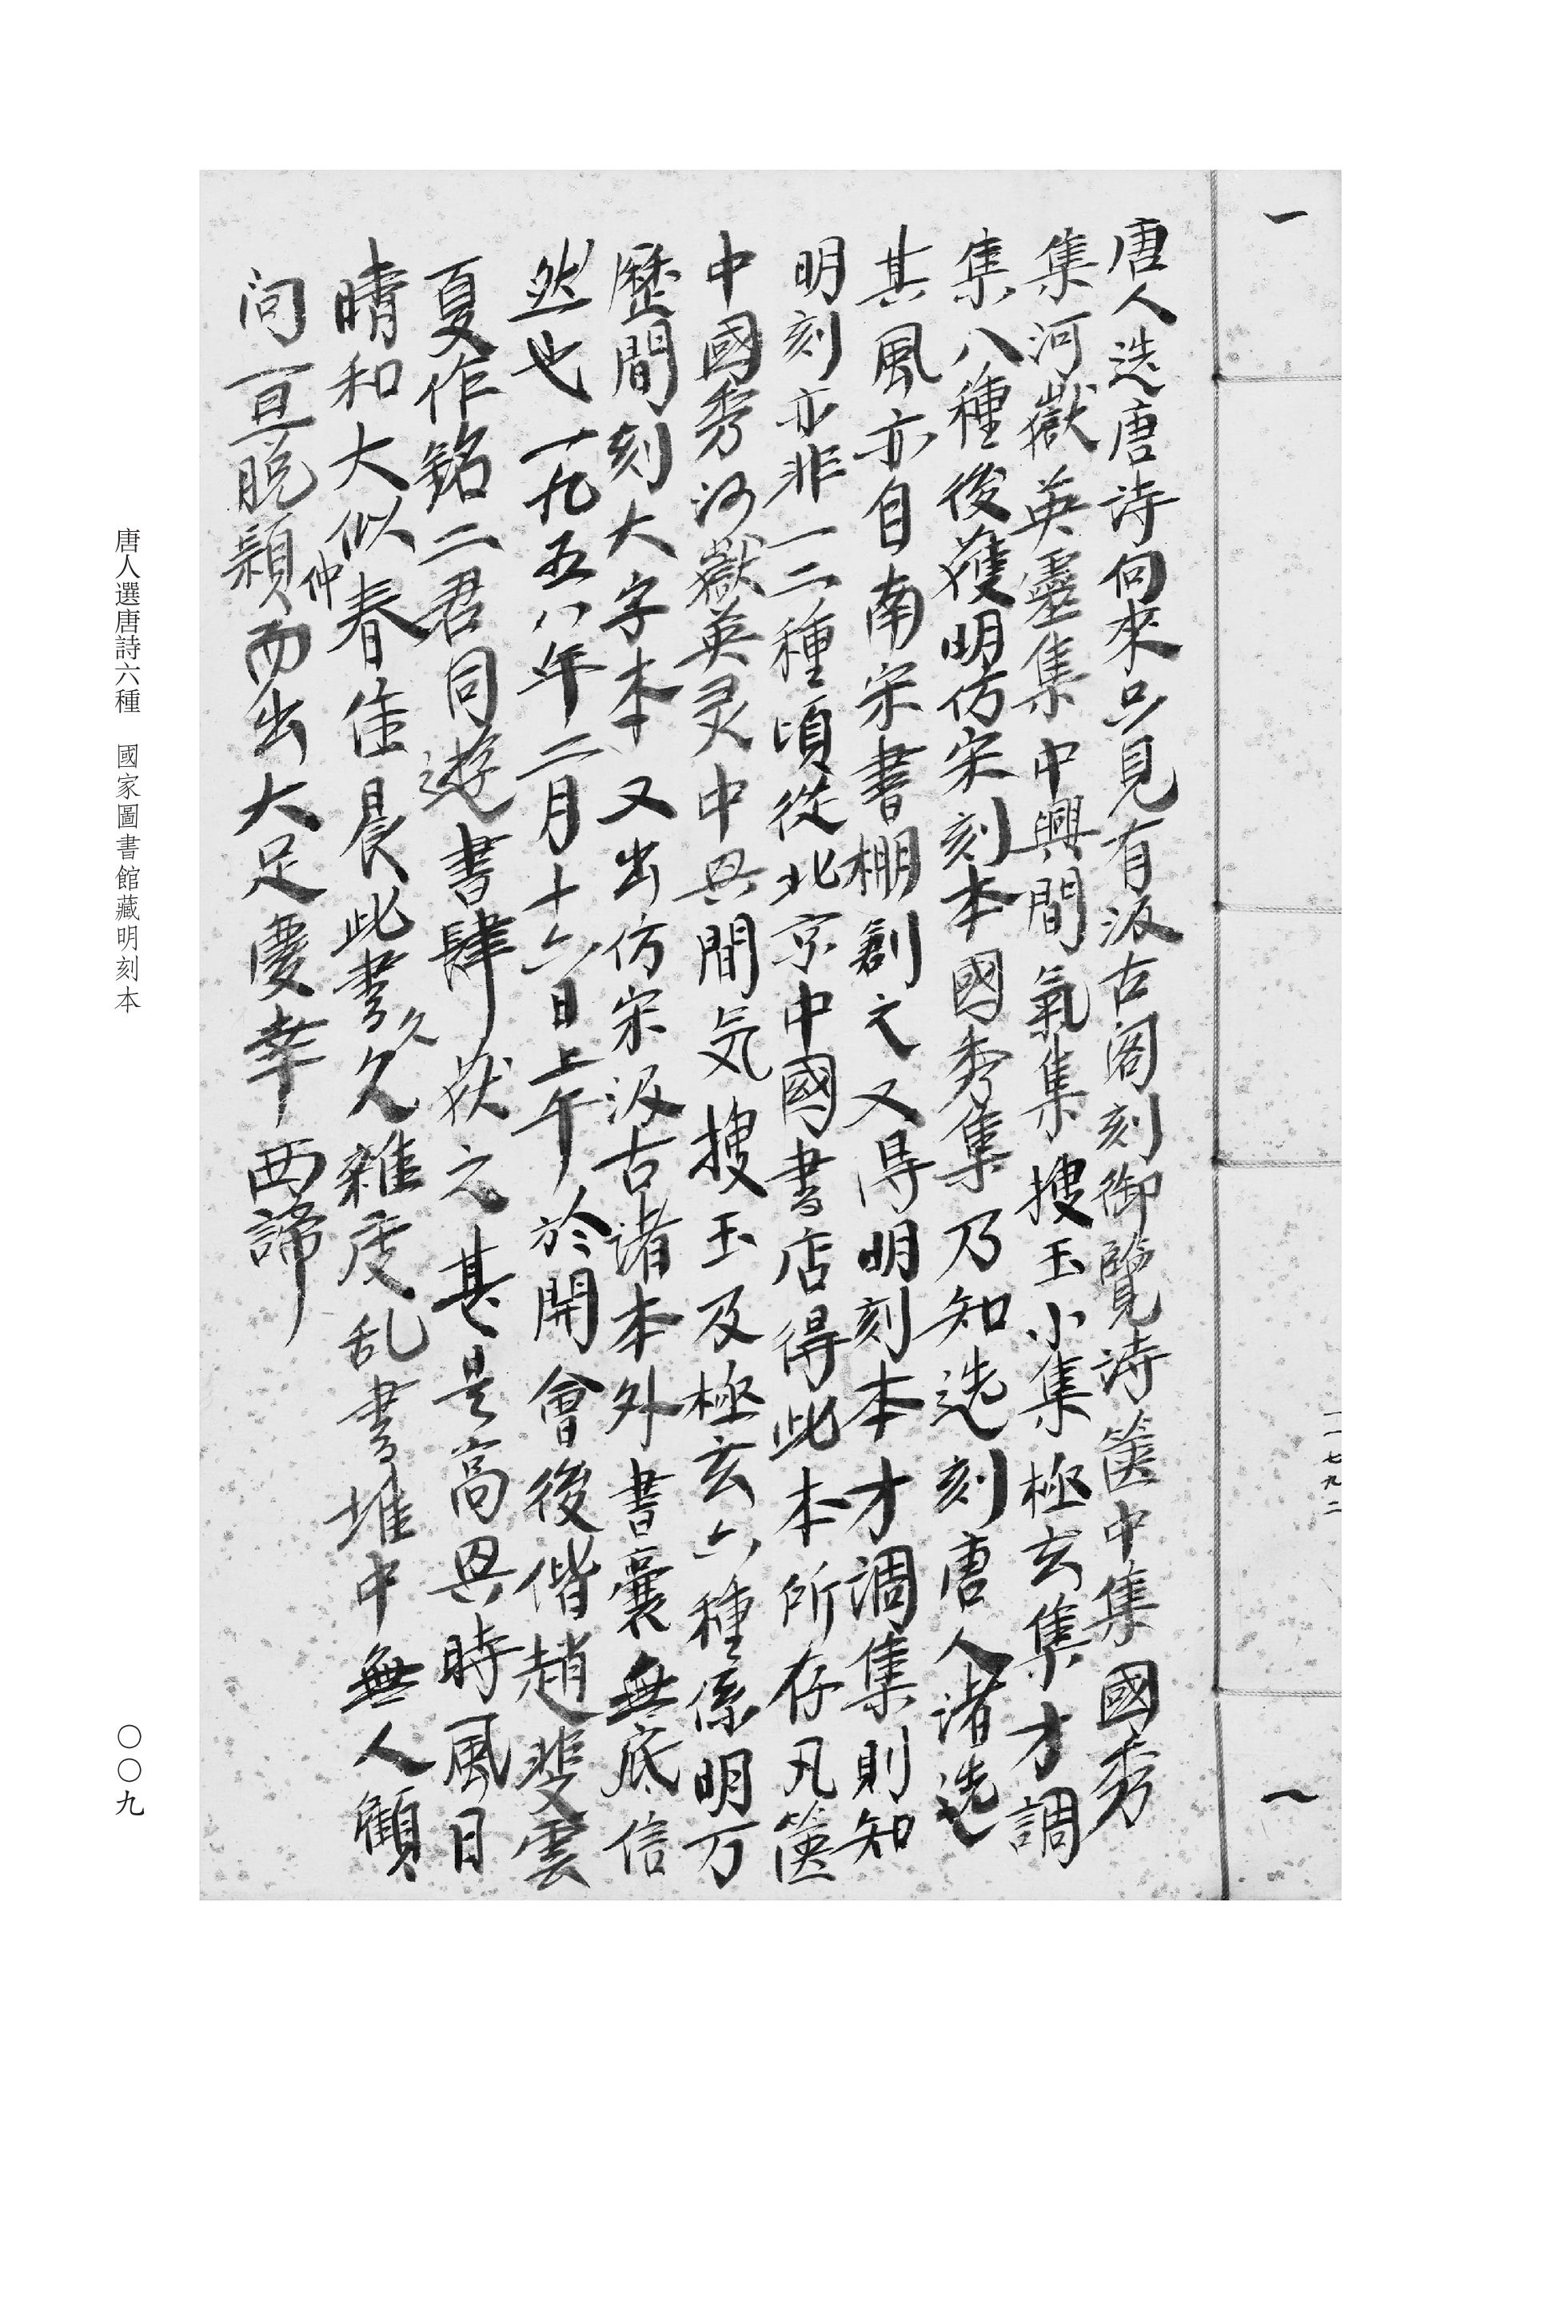 唐人选唐诗向來只見有汲古阁刻御覽诗箧中集國秀
集河嶽英靈集中興間氣集搜玉小集極玄集才調
集八種後獲明仿宋刻本國秀集乃知选刻唐人诸选
其風亦自南宋書棚創之又得明刻本才调集則知
明刻亦非一二種頃從北京中國書店得此本所存凡箧
中國秀河嶽英灵中興間気搜玉及極玄六種係明万
歷間刻大字本又出仿宋汲古诸本外書囊無底信
然也一九五八年二月十六日上午於開會後偕趙斐雲
夏作銘二君同遊書肆获之甚是高興時風日
晴和大似仲春佳晨此書久久雜廁乱書堆中無人顧
问一旦脱穎而出大足慶幸西諦
一一七九二
唐人選唐詩六種 國家圖書館藏明刻本
〇〇九